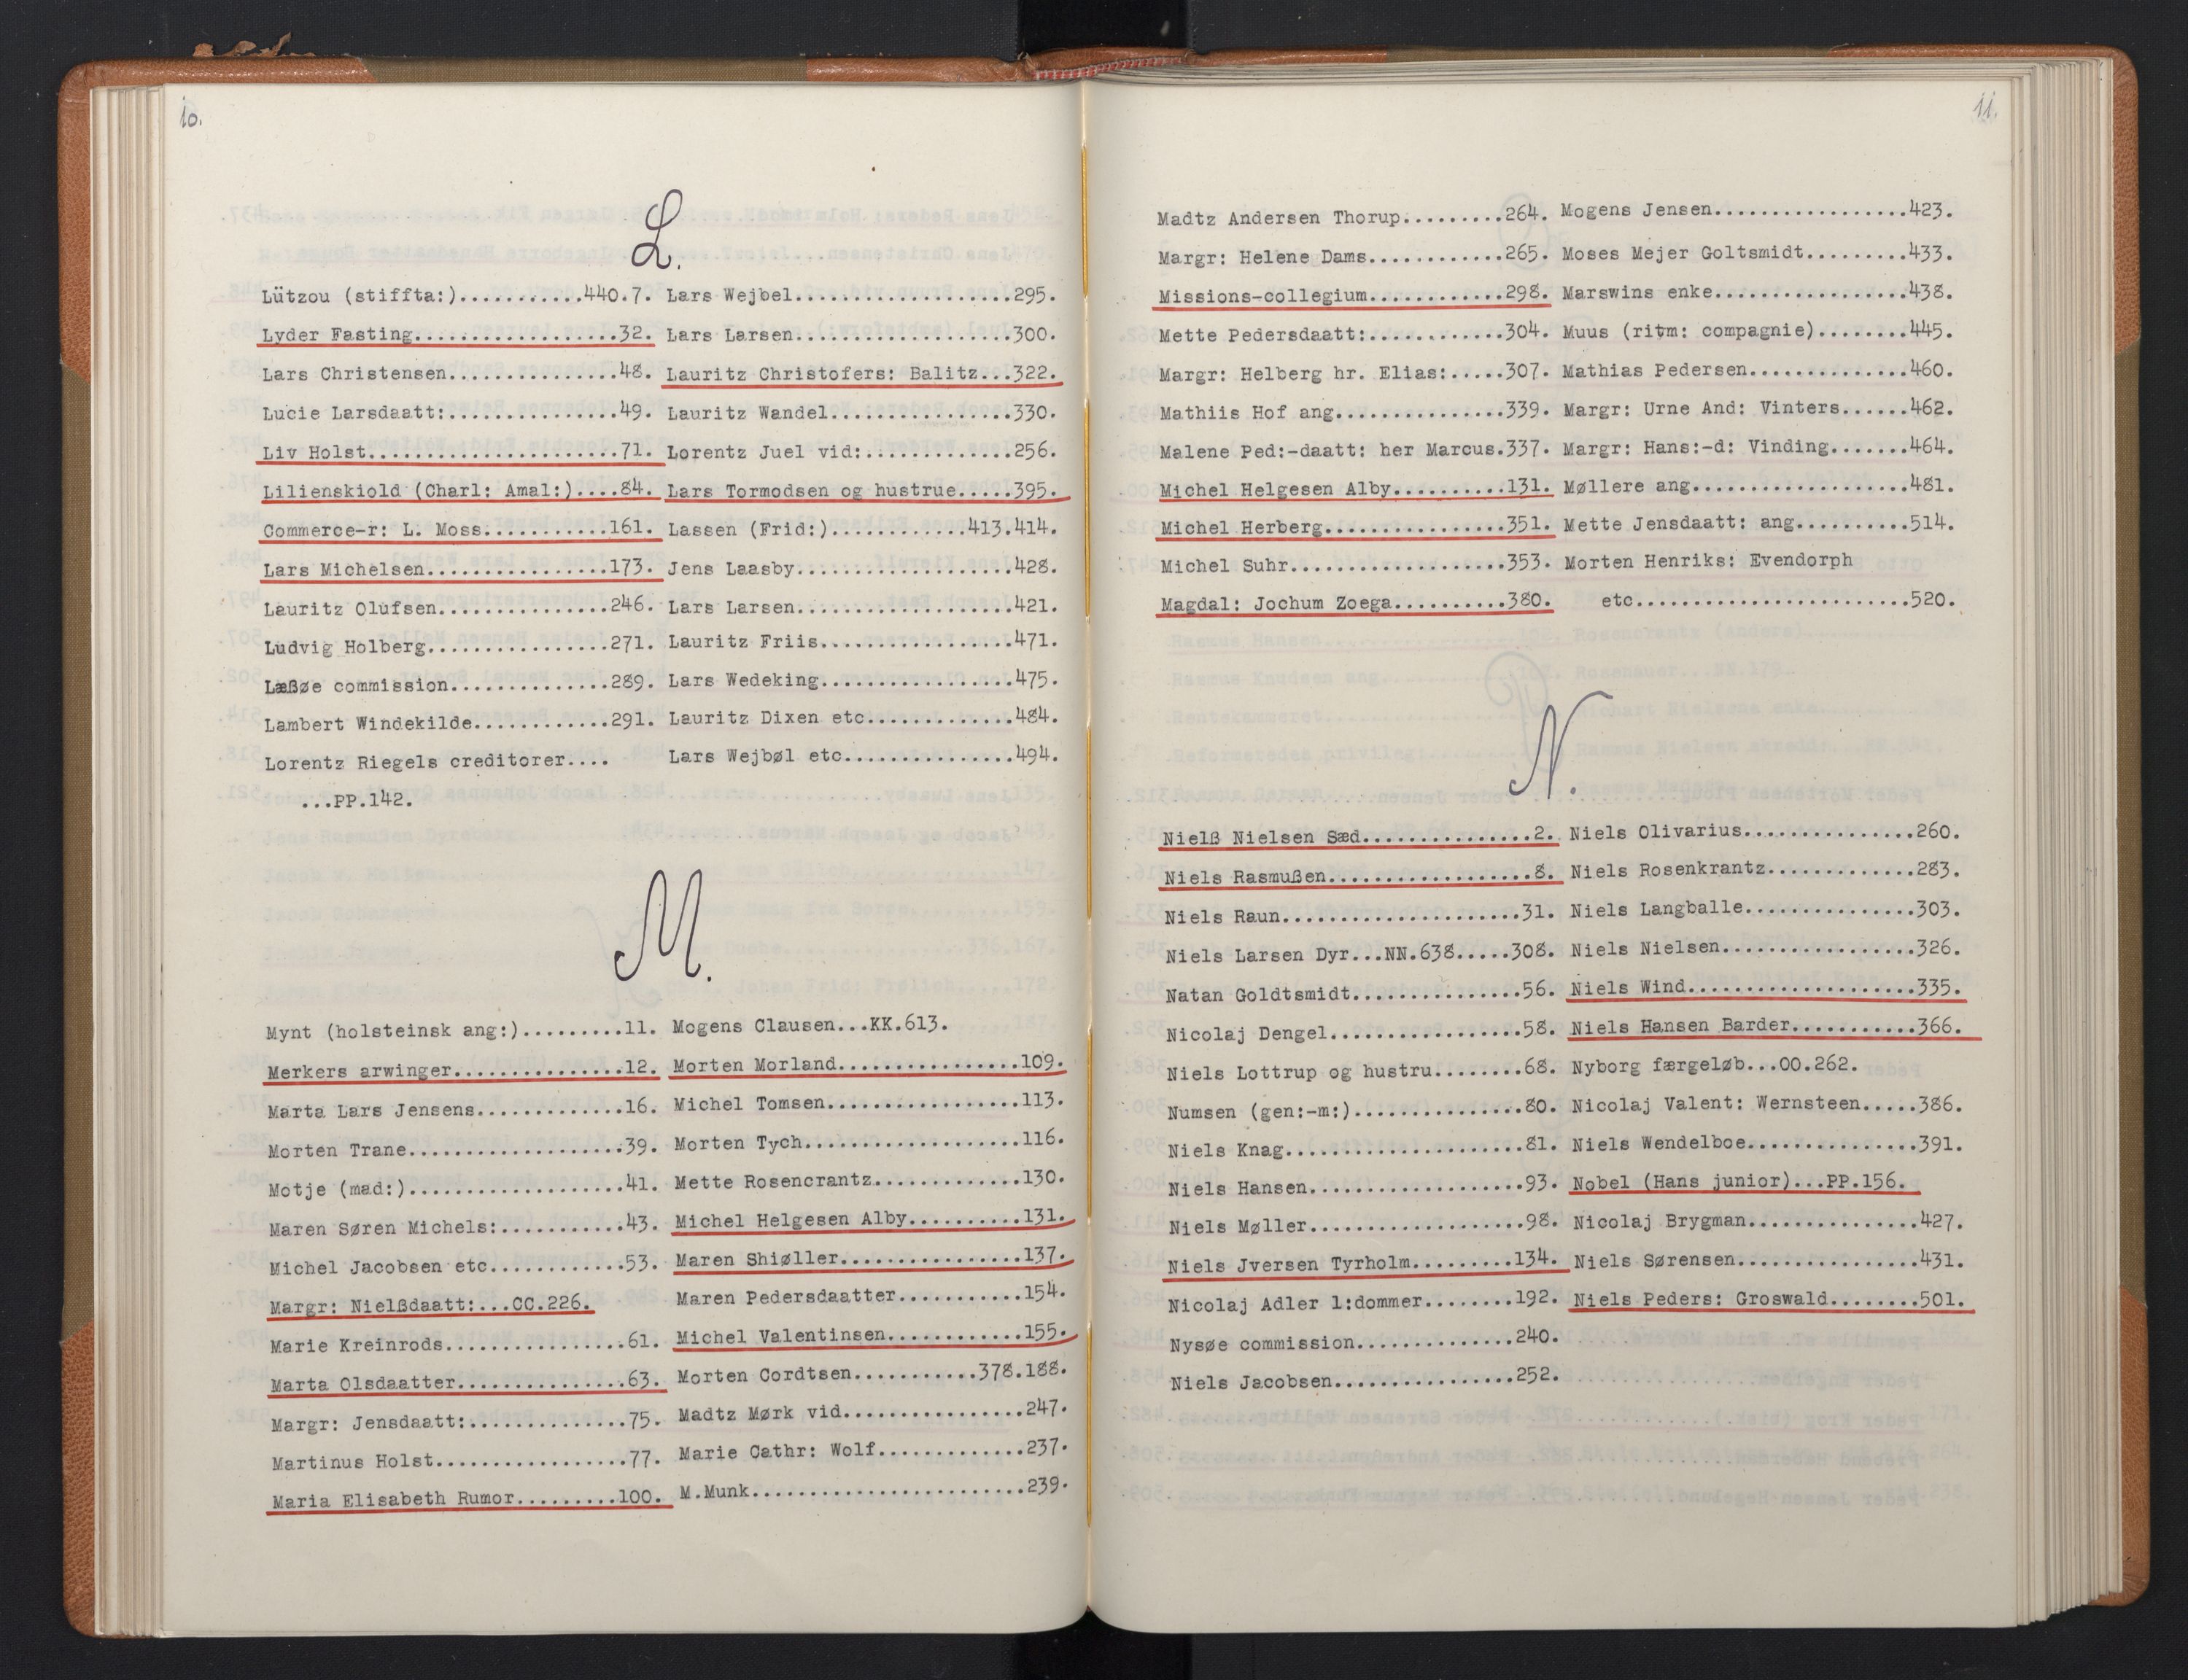 10.
L.
Lützou (stiffta:)...........440.7.
Lyder Fasting...................32.
Lars Christensen................48.
Lucie Larsdaatt:................49.
Liv Holst.......................71.
Lilienskiold (Charl: Amal:)....84.
Commerce-r: L. Moss............161.
Lars Michelsen.................173.
Lauritz Olufsen................246.
Ludvig Holberg.................271.
Læßøe commission...............289.
Lambert Windekilde.............291.
Lorentz Riegels creditorer....
...PP.142.
Lars Wejbel....................295.
Lars Larsen....................300.
Lauritz Christofers: Balitz...322.
Lauritz Wandel.................330.
Lorentz Juel vid:..............256.
Lars Tormodsen og hustrue.....395.
Lassen (Frid:).............413.414.
Jens Laasby....................428.
Lars Larsen....................421.
Lauritz Friis..................471.
Lars Wedeking..................475.
Lauritz Dixen etc..............484.
Lars Wejbøl etc................494.
M.
Mynt (holsteinsk ang:).........11.
Merkers arwinger................12.
Marta Lars Jensens.............16.
Morten Trane....................39.
Motje (mad:)....................41.
Maren Søren Michels:...........43.
Michel Jacobsen etc............53.
Margr: Nielßdaatt:...CC.226.
Marie Kreinrods.................61.
Marta Olsdaatter................63.
Margr: Jensdaatt:...............75.
Martinus Holst..................77.
Maria Elisabeth Rumor.........100.
Mogens Clausen...KK.613.
Morten Morland.................109.
Michel Tomsen..................113.
Morten Tych....................116.
Mette Rosencrantz..............130.
Michel Helgesen Alby..........131.
Maren Shiøller.................137.
Maren Pedersdaatter...........154.
Michel Valentinsen.............155.
Morten Cordtsen...........378.188.
Madtz Mørk vid.................247.
Marie Cathr: Wolf..............237.
M.Munk.........................239.
11.
Madtz Andersen Thorup.........264.
Margr: Helene Dams............265.
Missions-collegium............298.
Mette Pedersdaatt:............304.
Margr: Helberg hr. Elias:.....307.
Mathiis Hof ang...............339.
Malene Ped:-daatt: her Marcus.337.
Michel Helgesen Alby..........131.
Michel Herberg................351.
Michel Suhr...................353.
Magdal: Jochum Zoega..........380.
Mogens Jensen.................423.
Moses Mejer Goltsmidt.........433.
Marswins enke.................438.
Muus (ritm: compagnie)........445.
Mathias Pedersen..............460.
Margr: Urne And: Vinters......462.
Margr: Hans:-d: Vinding.......464.
Møllere ang...................481.
Mette Jensdaatt: ang..........514.
Morten Henriks: Evendorph
etc.........................520.
N.
Nielß Nielsen Sæd...............2.
Niels Rasmußen..................8.
Niels Raun.....................31.
Niels Larsen Dyr...NN.638.....308.
Natan Goldtsmidt...............56.
Nicolaj Dengel.................58.
Niels Lottrup og hustru........68.
Numsen (gen:-m:)...............80.
Niels Knag.....................81.
Niels Hansen...................93.
Niels Møller...................98.
Niels Jversen Tyrholm.........134.
Nicolaj Adler l:dommer........192.
Nysøe commission..............240.
Niels Jacobsen................252.
Niels Olivarius...............260.
Niels Rosenkrantz.............283.
Niels Langballe...............303.
Niels Nielsen.................326.
Niels Wind....................335.
Niels Hansen Barder...........366.
Nyborg færgeløb...OO.262.
Nicolaj Valent: Wernsteen.....386.
Niels Wendelboe...............391.
Nobel (Hans junior)...PP.156.
Nicolaj Brygman...............427.
Niels Sørensen................431.
Niels Peders: Groswald........501.